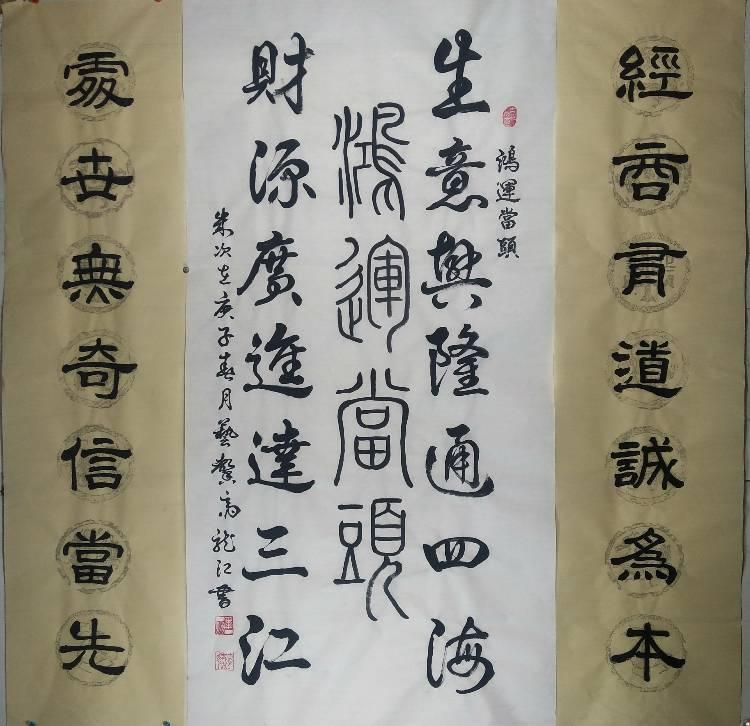 經商有道誠為本
鴻運當頭
生意興隆通四海
鴻運當頭
財源廣進達三江
次在庚子春月藝龍江書
處世無奇信當先